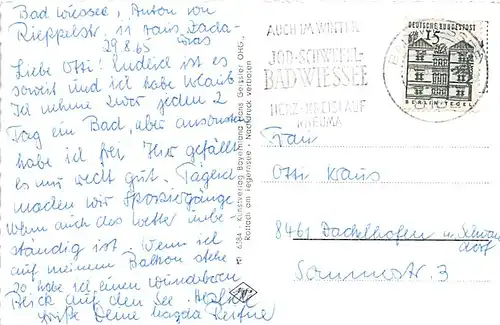 Bad Wiessee, Anton von
Rieppelstr. 11
29.8.65
Liebe Otti! Endlich ist es
soweit und ich habe Urlaub.
Ich nehme zwar jeden 2
Tag ein Bad, aber ansonsten
habe ich frei. Hier gefällt
es mir recht gut. Tagend
machen wir Spaziergänge.
Wenn auch das Wetter unbe-
ständig ist. Wenn ich
auf meinem Balkon stehe
so habe ich einen wunderbaren
Blick auf den See. Herzliche
Grüße Deine Magda
6384 · Kunstverlag Bayernland Hans Gessler OHG,
Rottach am Tegernsee · Nachdruck verboten
AUCH IM WINTER
JOD-SCHWEFEL-
BAD WIESSEE
HERZ-KREISLAUF
RHEUMA
DEUTSCHE BUNDESPOST
15
BERLIN-TEGEL
Frau
Otti Kraus
8461 Dachelhofen
dorf
Sonnenstr. 3